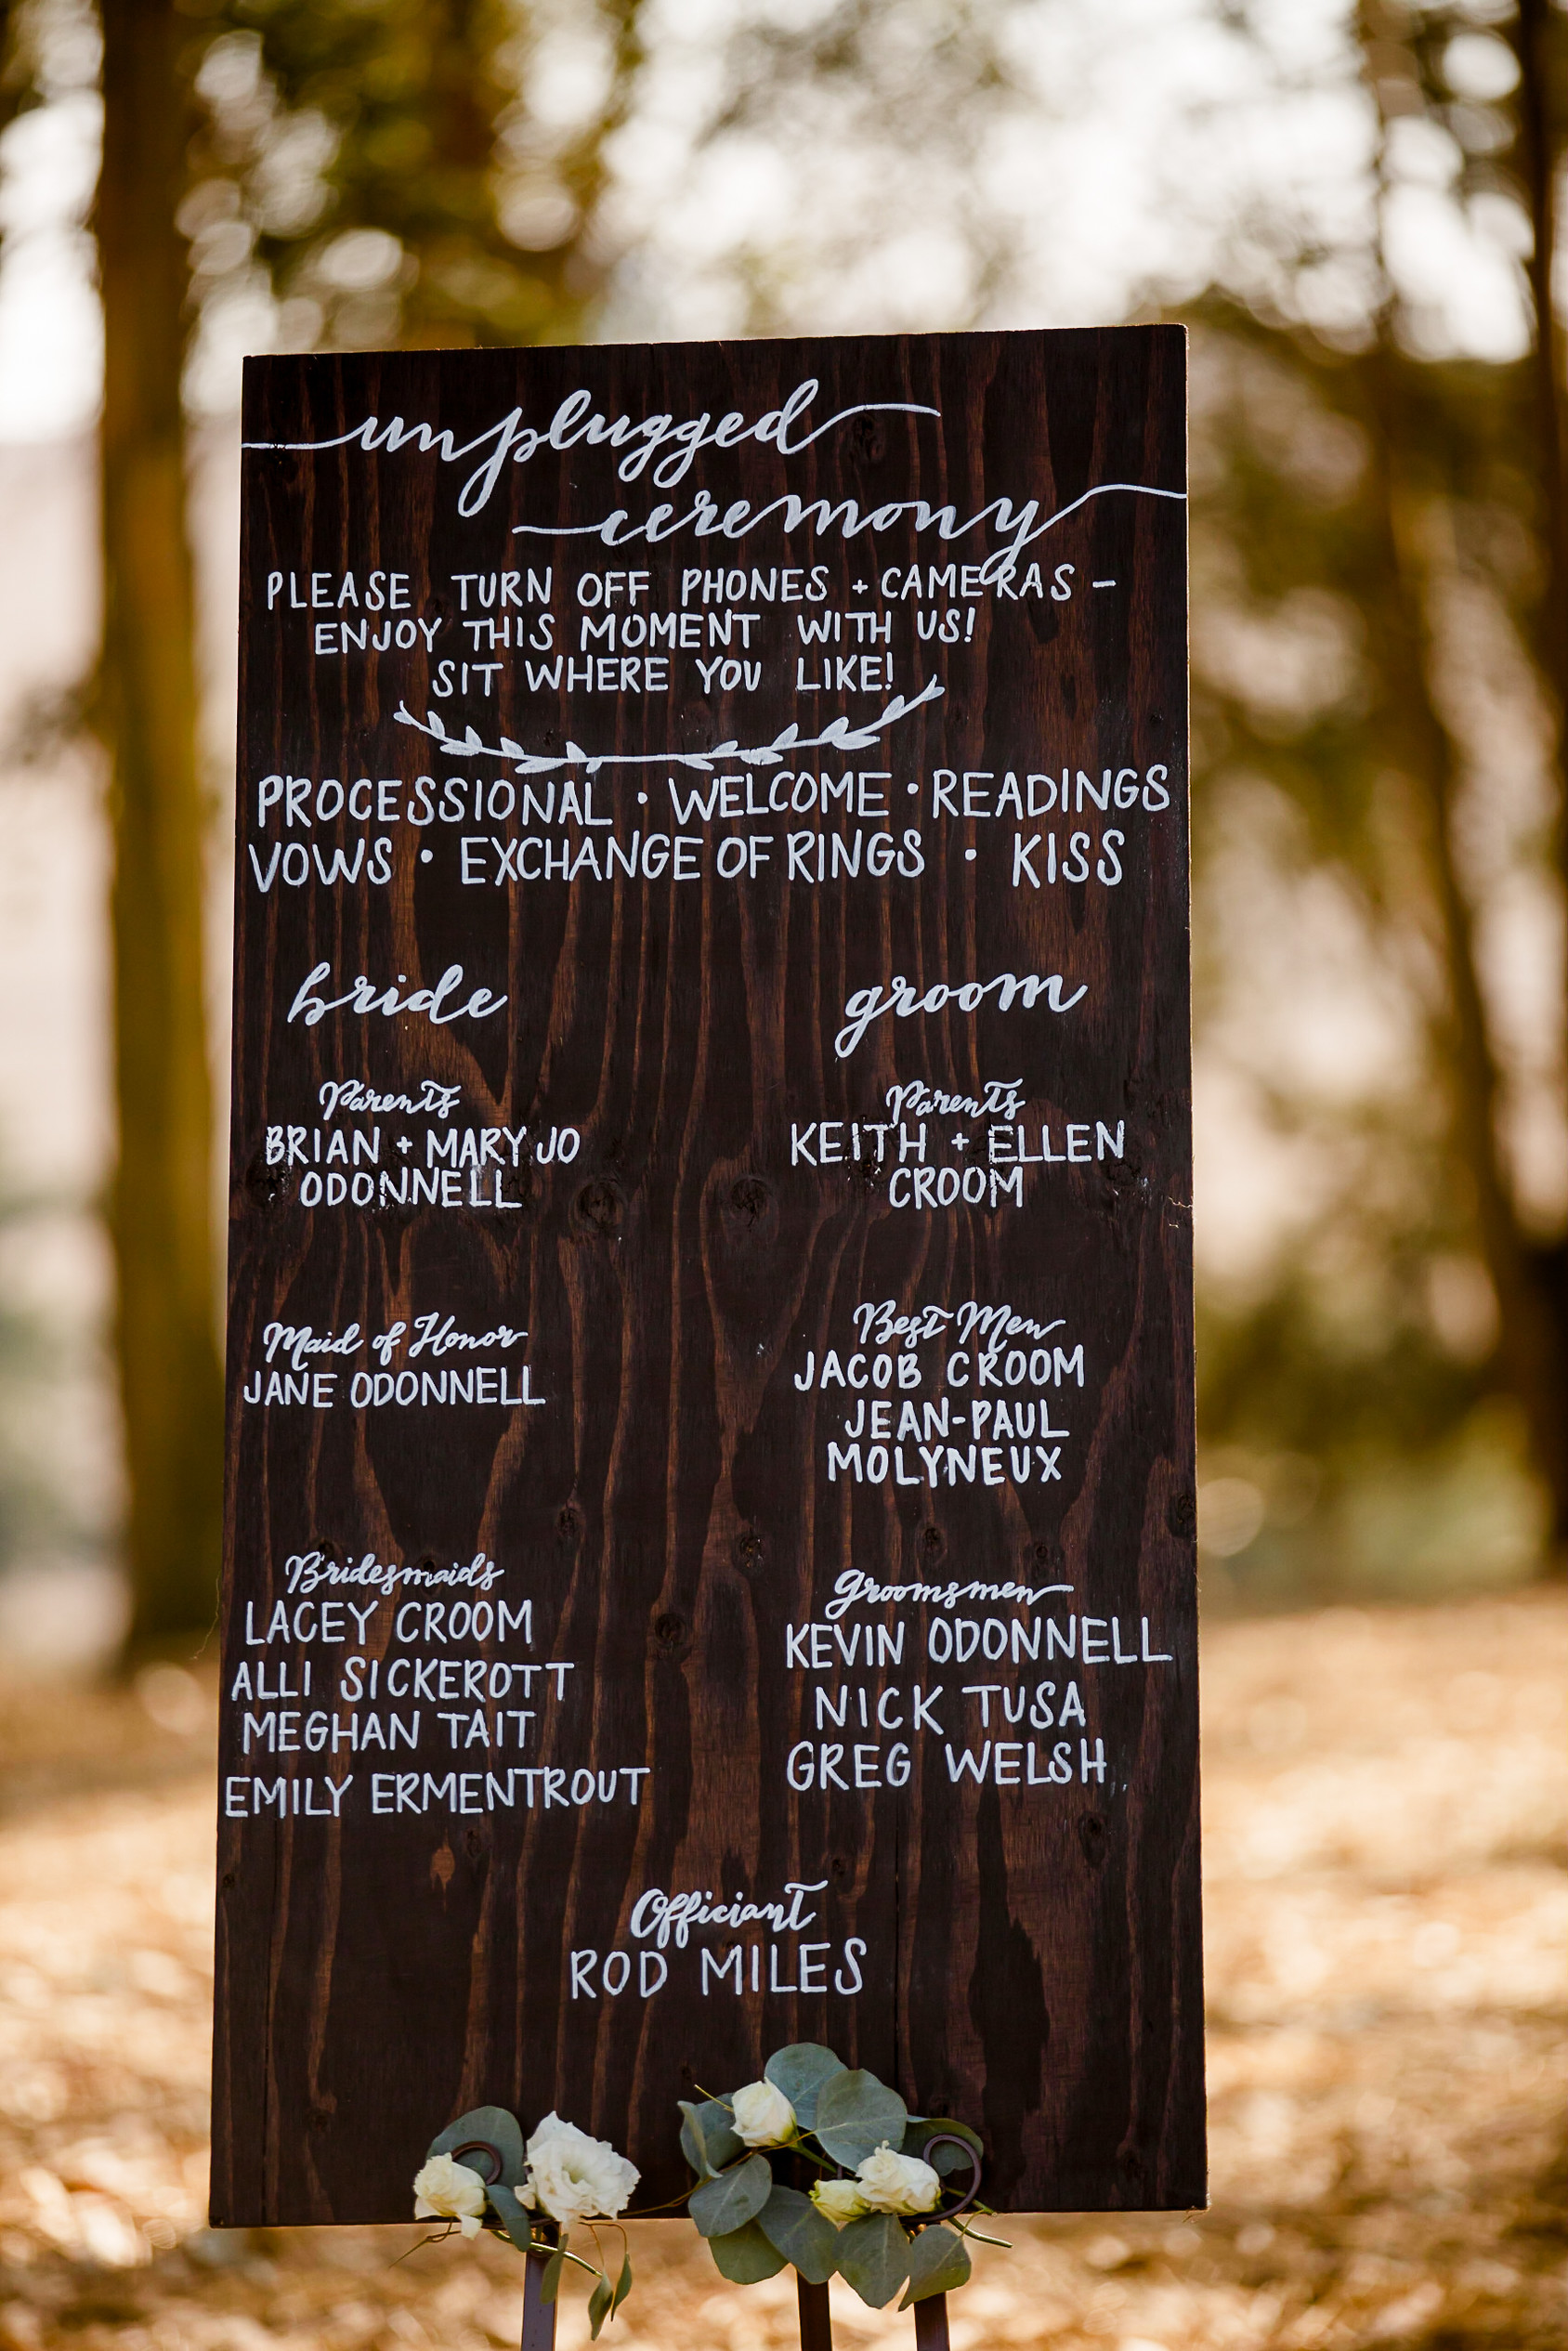 unplugged
ceremony
PLEASE TURN OFF PHONES + CAMERAS -
ENJOY THIS MOMENT WITH US!
SIT WHERE YOU LIKE!
PROCESSIONAL • WELCOME • READINGS
VOWS • EXCHANGE OF RINGS • KISS
bride
Parents
BRIAN + MARY JO
ODONNELL
Maid of Honor
JANE ODONNELL
Bridesmaids
LACEY CROOM
ALLI SICKEROTT
MEGHAN TAIT
EMILY ERMENTROUT
groom
Parents
KEITH + ELLEN
CROOM
Best Men
JACOB CROOM
JEAN-PAUL
MOLYNEUX
Groomsmen
KEVIN ODONNELL
NICK TUSA
GREG WELSH
Officiant
ROD MILES